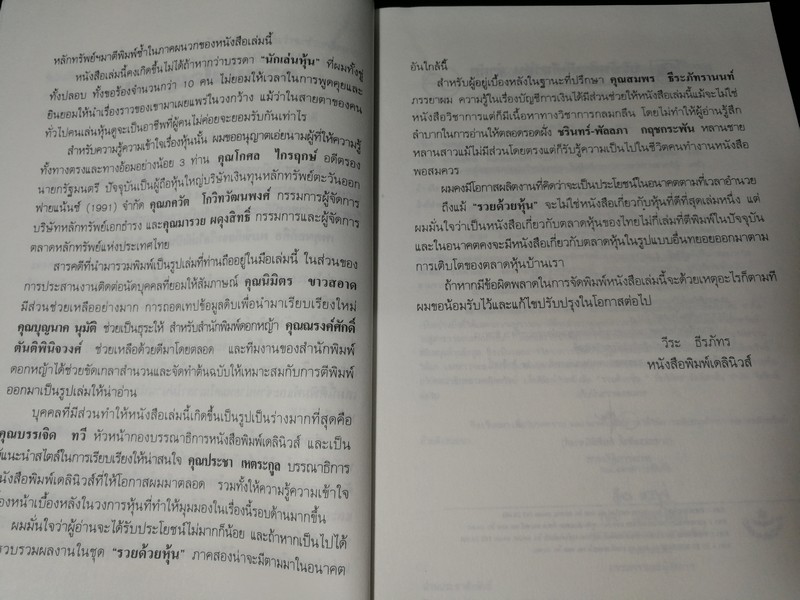 หลักทรัพย์ฯมาตีพิมพ์ซ้ำในภาคผนวกของหนังสือเล่มนี้
หนังสือเล่มนี้คงเกิดขึ้นไม่ได้ถ้าหากว่าบรรดา "นักเล่นหุ้น" ที่ผมทั้งขู่
ทั้งปลอบ ทั้งขอร้องจำนวนกว่า 10 คน ไม่ยอมให้เวลาในการพูดคุยและ
ยินยอมให้นำเรื่องราวของเขามาเผยแพร่ในวงกว้าง แม้ว่าในสายตาของคน
ทั่วไปคนเล่นหุ้นดูจะเป็นอาชีพที่ผู้คนไม่ค่อยจะยอมรับกันเท่าไร
สำหรับความรู้ความเข้าใจเรื่องหุ้นนั้น ผมขออนุญาตเอ่ยนามผู้ที่ให้ความรู้
ทั้งทางตรงและทางอ้อมอย่างน้อย 3 ท่าน คุณโกศล ไกรฤกษ์ อดีตรอง
นายกรัฐมนตรี ปัจจุบันเป็นผู้ถือหุ้นใหญ่บริษัทเงินทุนหลักทรัพย์ตะวันออก
ฟายแน้นซ์ (1991) จำกัด คุณภควัต โกวิทวัฒนพงศ์ กรรมการผู้จัดการ
บริษัทหลักทรัพย์เอกธำรง และคุณมารวย ผดุงสิทธิ์ กรรมการและผู้จัดการ
ตลาดหลักทรัพย์แห่งประเทศไทย
สารคดีที่นำมารวมพิมพ์เป็นรูปเล่มที่ท่านถืออยู่ในมือเล่มนี้ ในส่วนของ
การประสานงานติดต่อนัดบุคคลที่ยอมให้สัมภาษณ์ คุณนิมิตร ขาวสอาด
มีส่วนช่วยเหลืออย่างมาก การถอดเทปข้อมูลดิบเพื่อนำมาเรียบเรียงใหม่
คุณบุญนาค นุมัติ ช่วยเป็นธุระให้ สำหรับสำนักพิมพ์ดอกหญ้า คุณณรงค์ศักดิ์
ตันติพินิจวงศ์ ช่วยเหลือด้วยดีมาโดยตลอด และทีมงานของสำนักพิมพ์
ดอกหญ้าได้ช่วยขัดเกลาสำนวนและจัดทำต้นฉบับให้เหมาะสมกับการตีพิมพ์
ออกมาเป็นรูปเล่มให้น่าอ่าน
บุคคลที่มีส่วนทำให้หนังสือเล่มนี้เกิดขึ้นเป็นรูปเป็นร่างมากที่สุดคือ
คุณบรรเจิด ทวี หัวหน้ากองบรรณาธิการหนังสือพิมพ์เดลินิวส์ และเป็น
แนะนำสไตล์ในการเรียบเรียงให้น่าสนใจ คุณประชา เหตระกูล บรรณาธิการ
หนังสือพิมพ์เดลินิวส์ที่ให้โอกาสผมมาตลอด รวมทั้งให้ความรู้ความเข้าใจ
องหน้าเบื้องหลังในวงการหุ้นที่ทำให้มุมมองในเรื่องนี้รอบด้านมากขึ้น
ผมมั่นใจว่าผู้อ่านจะได้รับประโยชน์ไม่มากก็น้อย และถ้าหากเป็นไปได้
รวบรวมผลงานในชุด "รวยด้วยหุ้น" ภาคสองน่าจะมีตามมาในอนาคต
อันใกล้นี้
สำหรับผู้อยู่เบื้องหลังในฐานะที่ปรึกษา คุณสมพร ธีระภัทรานนท์
ภรรยาผม ความรู้ในเรื่องบัญชีการเงินได้มีส่วนช่วยให้หนังสือเล่มนี้แม้จะไม่ใช่
หนังสือวิชาการแต่ก็มีเนื้อหาทางวิชาการกลมกลืน โดยไม่ทำให้ผู้อ่านรู้สึก
ลำบากในการอ่านให้ตลอดรอดฝั่ง ชรินทร์-พัลลภา กฤชกระพัน หลานชาย
หลานสาวแม้ไม่มีส่วนโดยตรงแต่ก็รับรู้ความเป็นไปในชีวิตคนทำงานหนังสือ
พอสมควร
ผมคงมีโอกาสผลิตงานที่คิดว่าจะเป็นประโยชน์ในอนาคตตามที่เวลาอำนวย
ถึงแม้ "รวยด้วยหุ้น" จะไม่ใช่หนังสือเกี่ยวกับหุ้นที่ดีที่สุดเล่มหนึ่ง แต่
ผมมั่นใจว่าเป็นหนังสือเกี่ยวกับตลาดหุ้นของไทยไม่กี่เล่มที่ตีพิมพ์ในปัจจุบัน
และในอนาคตคงจะมีหนังสือเกี่ยวกับตลาดหุ้นในรูปแบบอื่นทยอยออกมาตาม
การเติบโตของตลาดหุ้นบ้านเรา
ถ้าหากมีข้อผิดพลาดในการจัดพิมพ์หนังสือเล่มนี้จะด้วยเหตุอะไรก็ตามที
ผมขอน้อมรับไว้และแก้ไขปรับปรุงในโอกาสต่อไป
วีระ ธีรภัทร
หนังสือพิมพ์เดลินิวส์